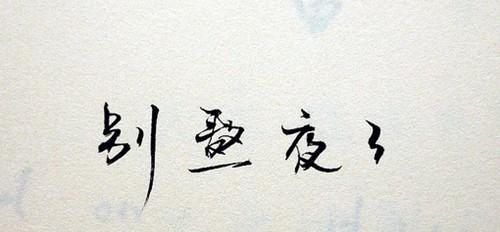 别熬夜了